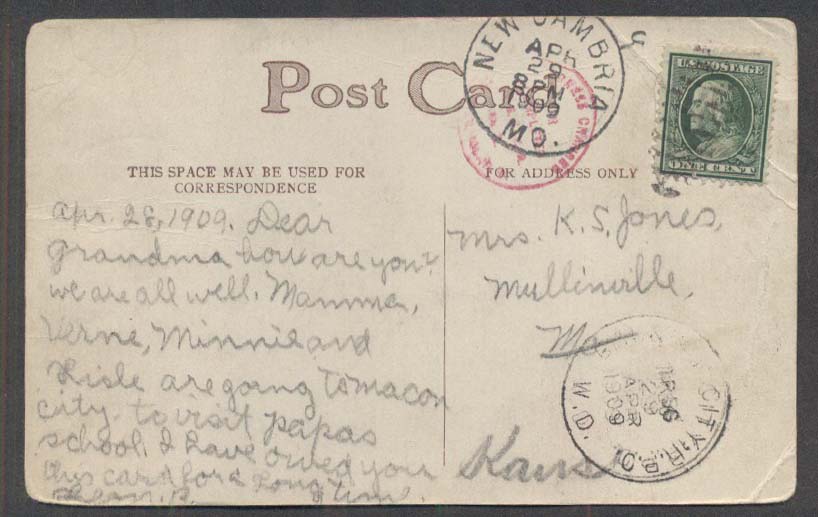 Post Card
NEW CAMBRIA
APR
29
8 PM
1909
MO.
U.S. POSTAGE
ONE CENT
THIS SPACE MAY BE USED FOR
CORRESPONDENCE
FOR ADDRESS ONLY
Apr. 28, 1909. Dear
Grandma how are you?
we are all well. Mamma,
Verne, Minnie and
Lisle are going to macon
city to visit papas
school. I have owed you
this card for a long time.
Mrs. K. S. Jones,
Mullinville,
Mo
Kans
CITY. R.P.O.
APR
29
1909